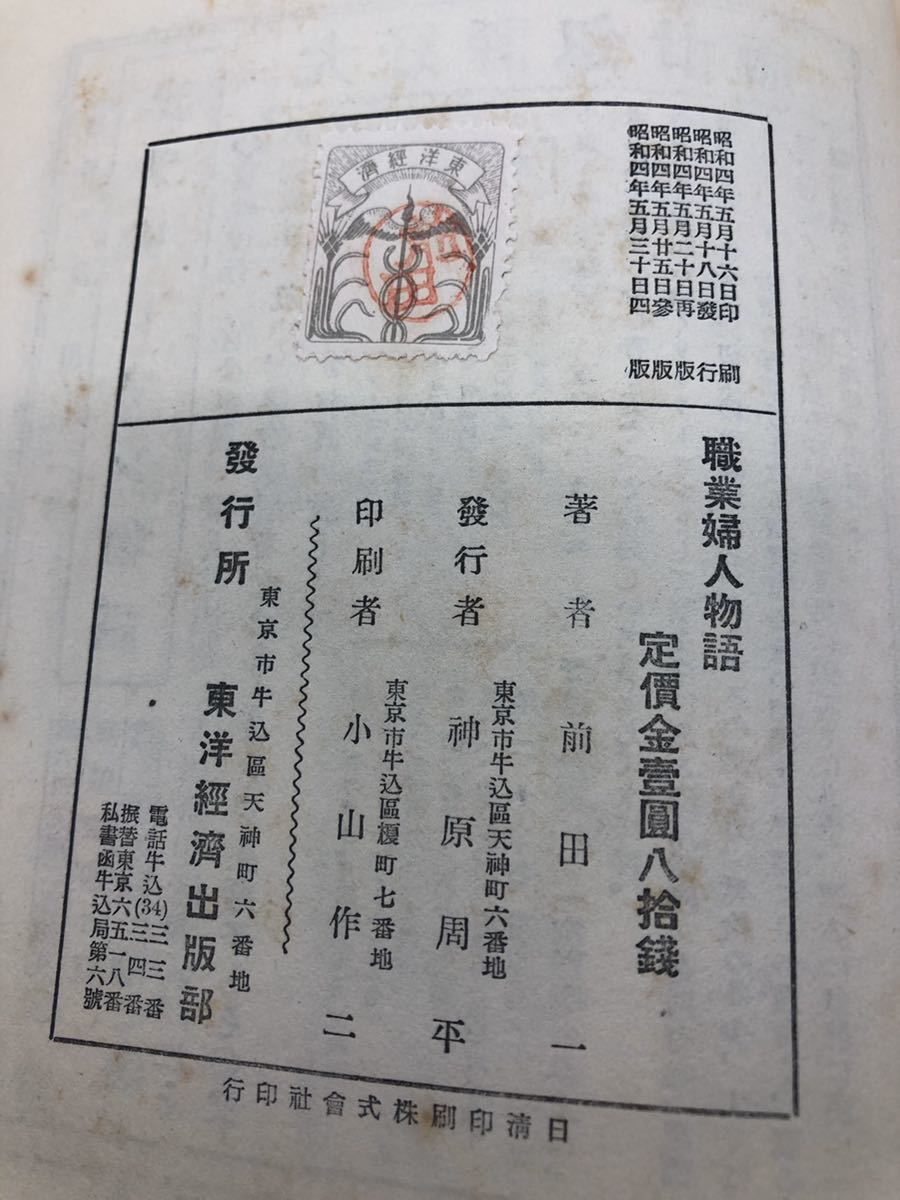 昭和四年五月十六日印刷
昭和四年五月十八日發行
昭和四年五月二十日再版
昭和四年五月廿五日參版
昭和四年五月三十日四版
東洋經濟
職業婦人物語
定價金壹圓八拾錢
著者 前田一
東京市牛込區天神町六番地
發行者 神原周平
東京市牛込區榎町七番地
印刷者 小山作二
東京市牛込區天神町六番地
發行所 東洋經濟出版部
電話牛込(34)三三番
三四番
振替東京六五一八番
私書函牛込局第六號
日淸印刷株式會社印行